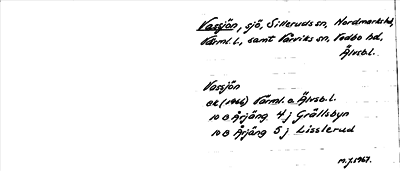 Vassjön, sjö, Sillerud sn, Nordmarks hd,
Värml. l., samt Värviks sn, Vedbo hd,
Älvsb.l.
Vassjön
GK (1966) Värml. o. Älvsb.l.
10 B Årjäng 4 j Grällsbyn
10 B Årjäng 5 j Lisslerud
1967.